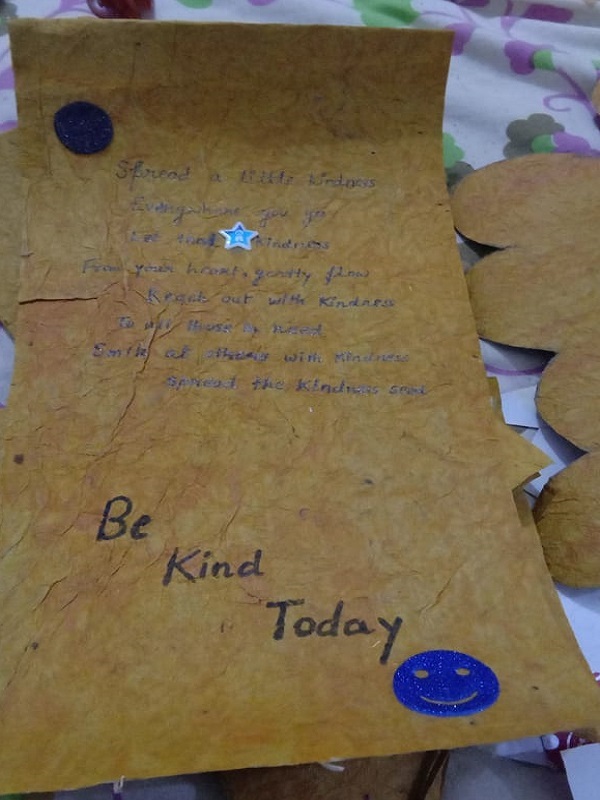 Spread a little kindness
Everywhere you go
Let that kindness
From your heart, gently flow
Reach out with kindness
To all those in need
Smile at others with kindness
Spread the kindness seed
Be
Kind
Today